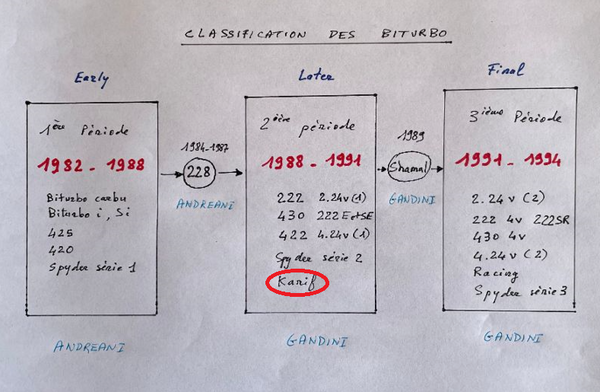 CLASSIFICATION DES BITURBO
Early
1ère Période
1982 - 1988
Biturbo carbu
Biturbo i, Si
425
420
Spyder série 1
ANDREANI
1984-1987
228
ANDREANI
Later
2ième période
1988 - 1991
222 2.24v (1)
430 222E et SE
422 4.24v (1)
Spyder série 2
Karif
GANDINI
1989
Shamal
GANDINI
Final
3ième Période
1991 - 1994
2.24v (2)
222 4v 222SR
430 4v
4.24v (2)
Racing
Spyder série 3
GANDINI